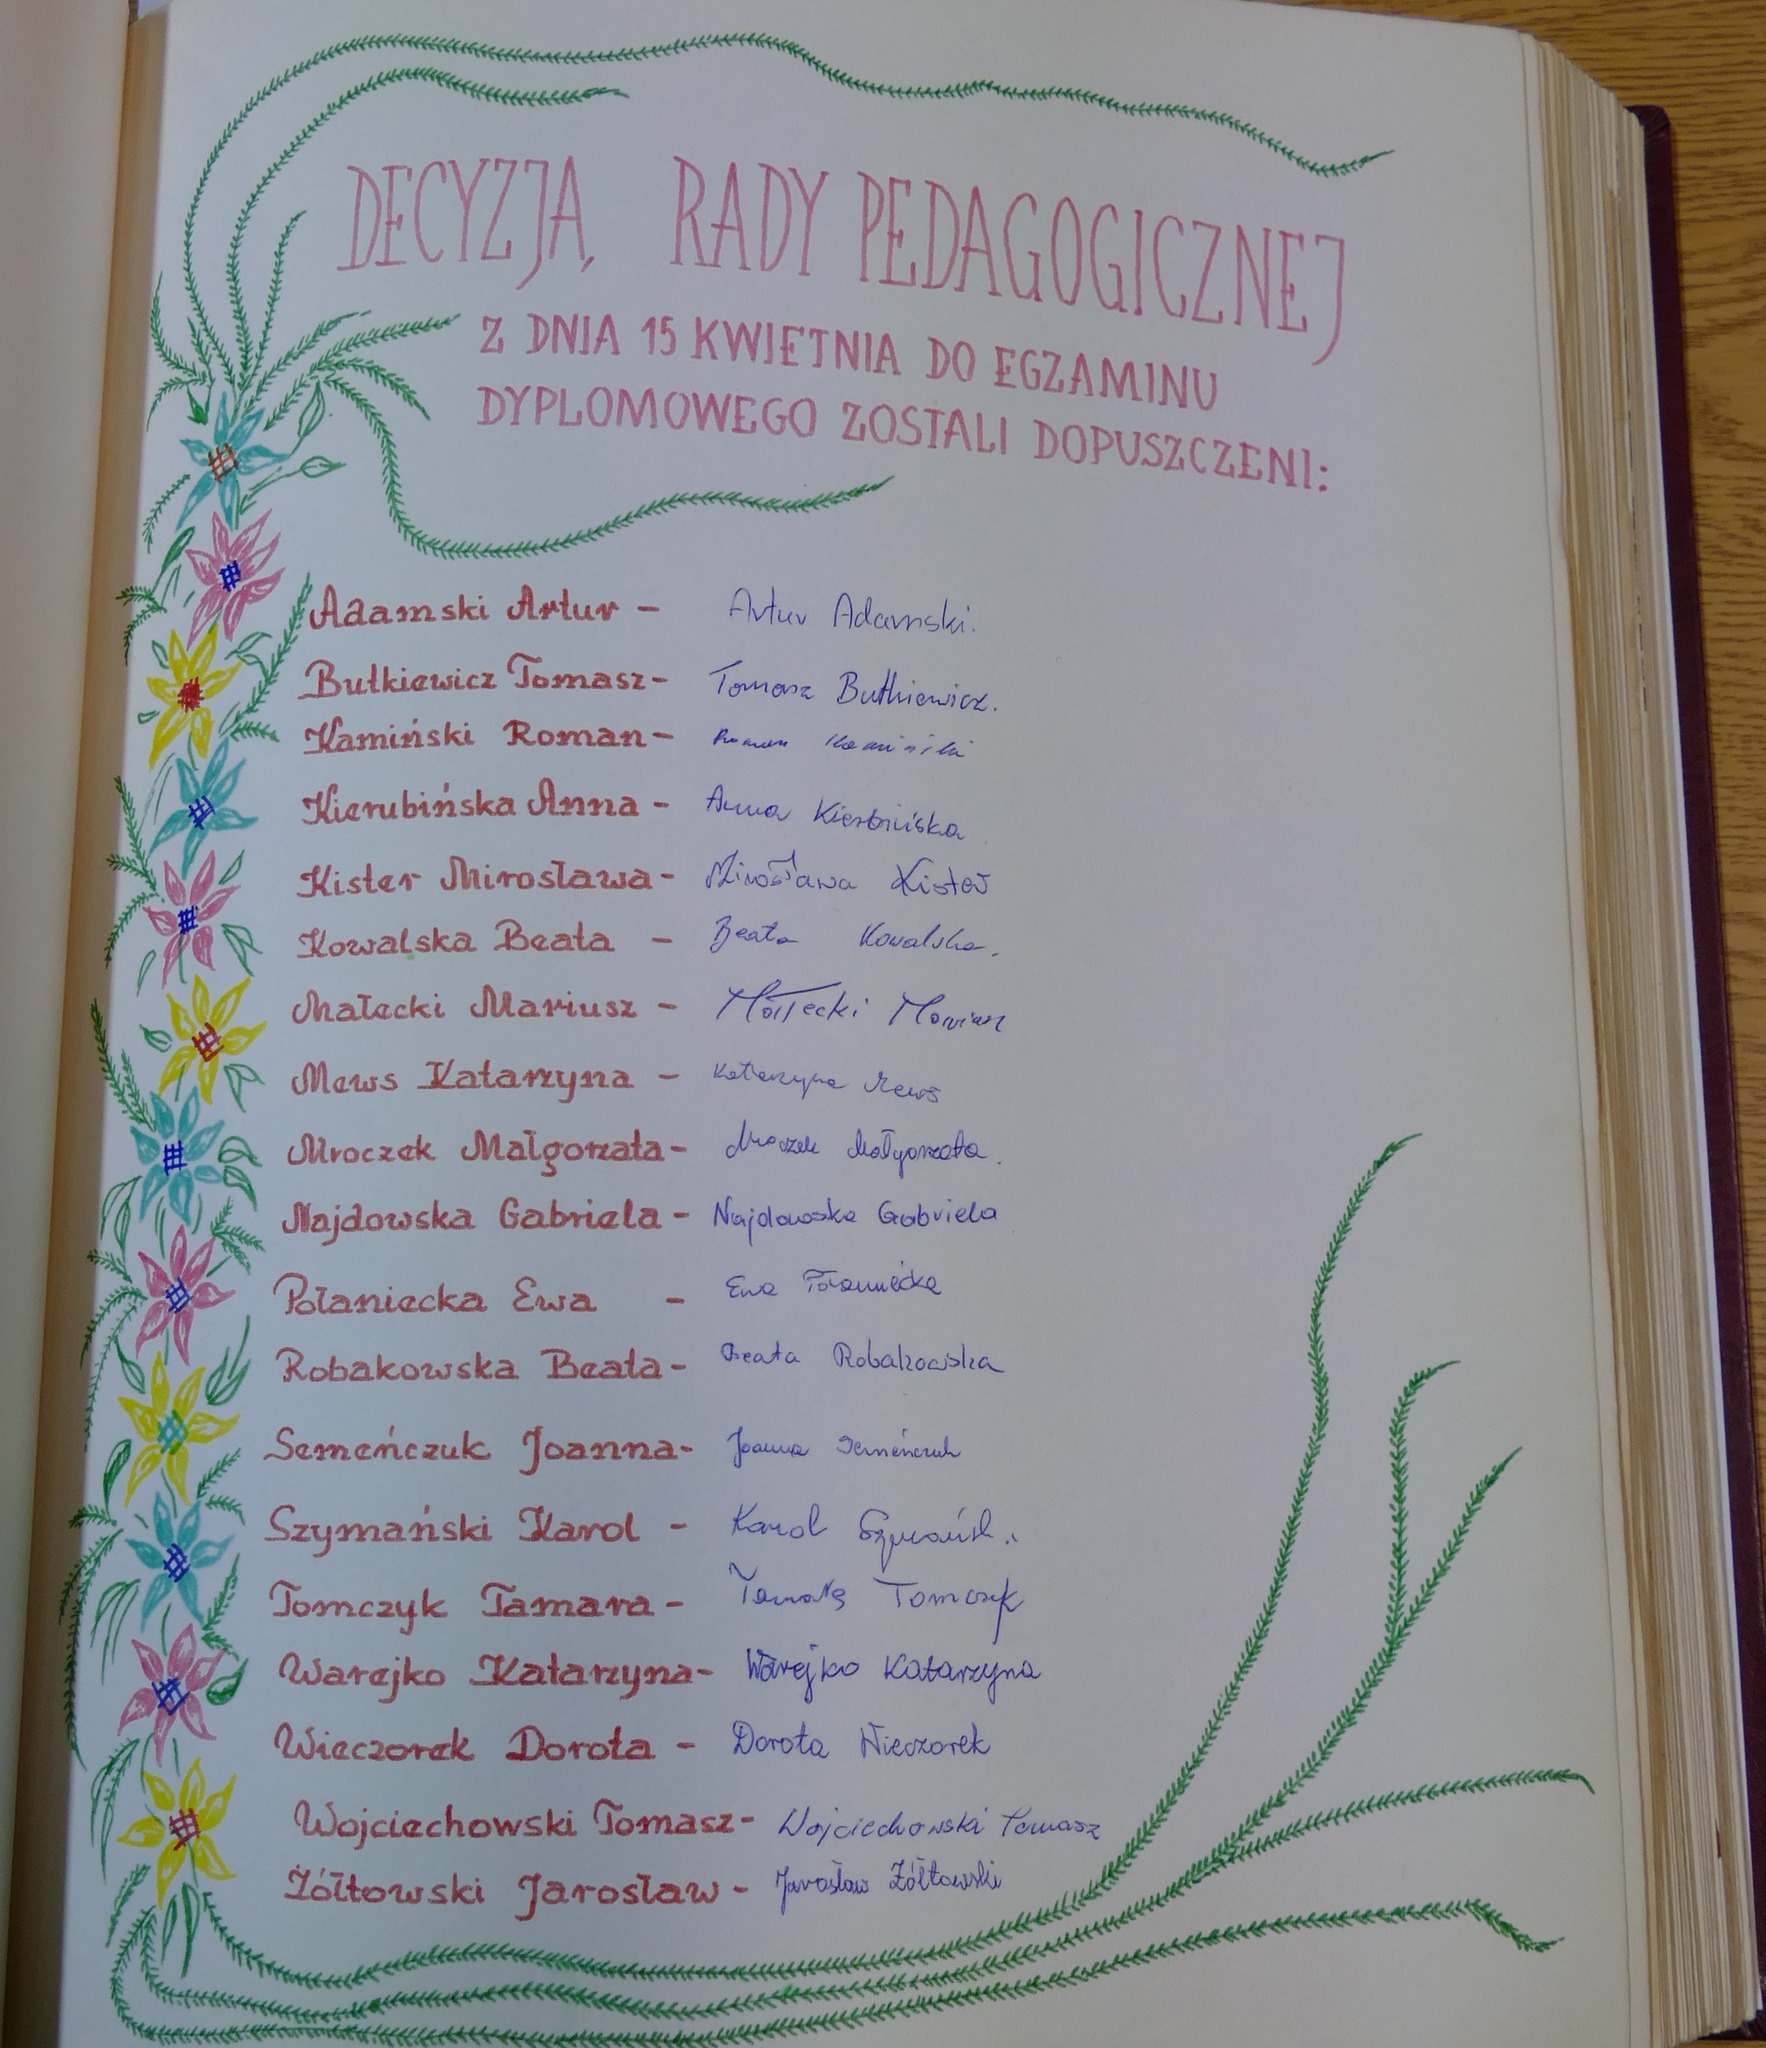 DECYZJĄ, RADY PEDAGOGICZNEJ
Z DNIA 15 KWIETNIA DO EGZAMINU
DYPLOMOWEGO ZOSTALI DOPUSZCZENI:
Adamski Artur - Artur Adamski.
Bułkiewicz Tomasz - Tomasz Bułkiewicz.
Kamiński Roman - Roman Kamiński
Kierubińska Anna - Anna Kierbińska
Kister Mirosława - Mirosława Kister
Kowalska Beata - Beata Kowalska.
Małecki Mariusz - Małecki Mariusz
Mews Katarzyna - Katarzyna Mews
Mroczek Małgorzata - Mroczek Małgorzata.
Najdowska Gabriela - Najdowska Gabriela
Połaniecka Ewa - Ewa Połaniecka
Robakowska Beata - Beata Robakowska
Semeńczuk Joanna - Joanna Semeńczuk
Szymański Karol - Karol Szymańsk..
Tomczyk Tamara - Tamara Tomczyk
Warejko Katarzyna - Warejko Katarzyna
Wieczorek Dorota - Dorota Wieczorek
Wojciechowski Tomasz - Wojciechowski Tomasz
Żółtowski Jarosław - Jarosław Żółtowski